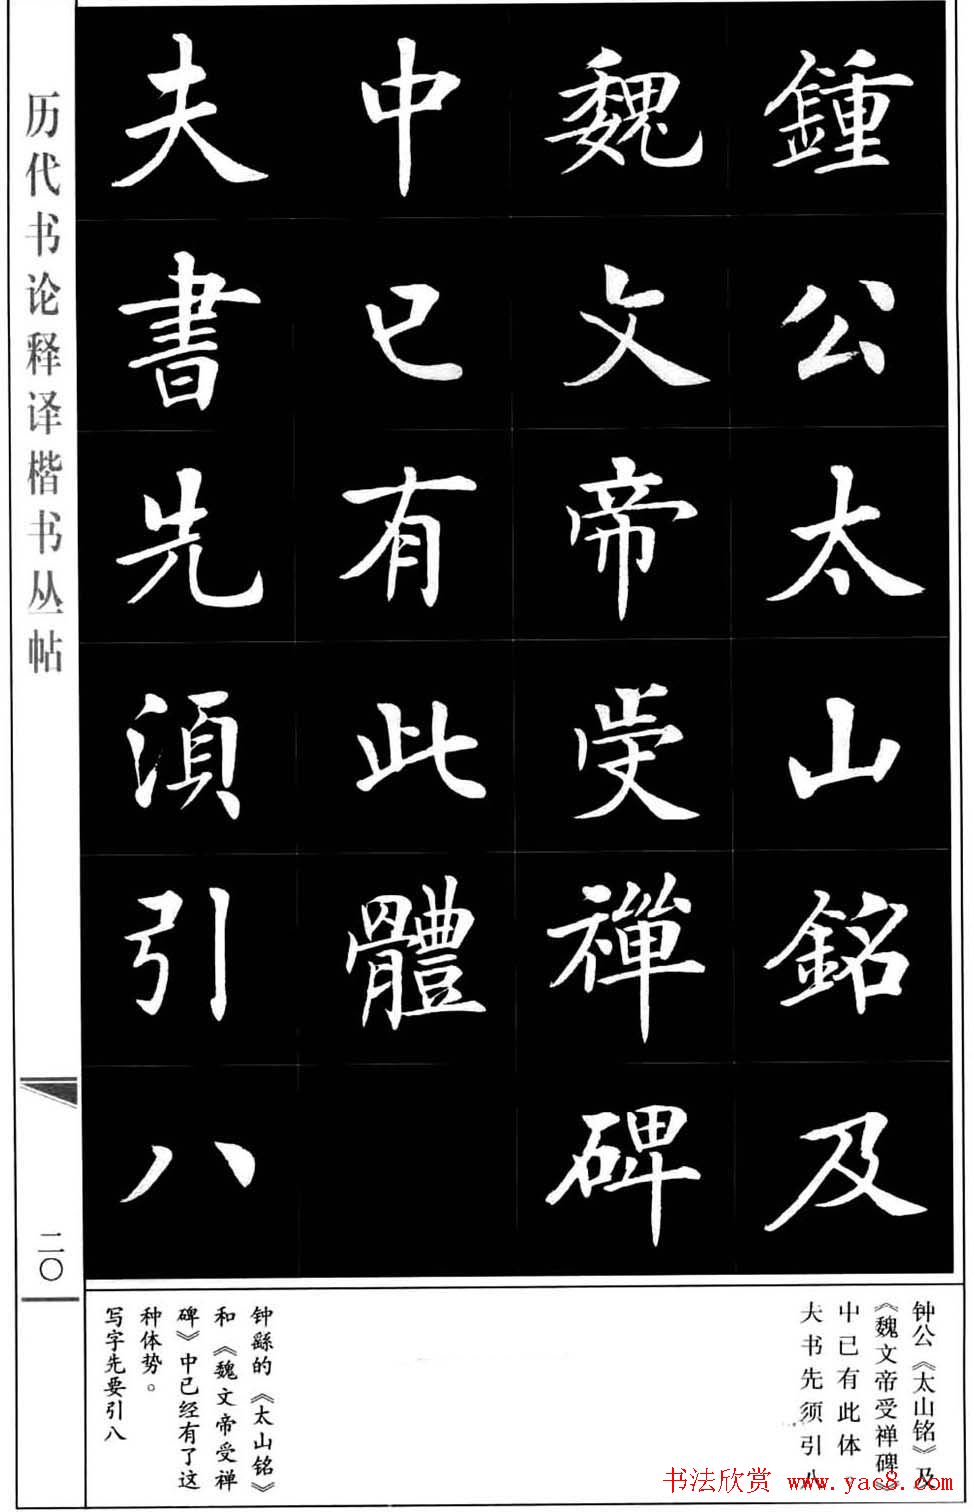 鍾公太山銘及
魏文帝受禪碑
中已有此體
夫書先須引八
钟公《太山铭》及
《魏文帝受禅碑》
中已有此体
夫书先须引八
钟繇的《太山铭》
和《魏文帝受禅
碑》中已经有了这
种体势。
写字先要引八
历代书论释译楷书丛帖
二〇
书法欣赏 www.yac8.com